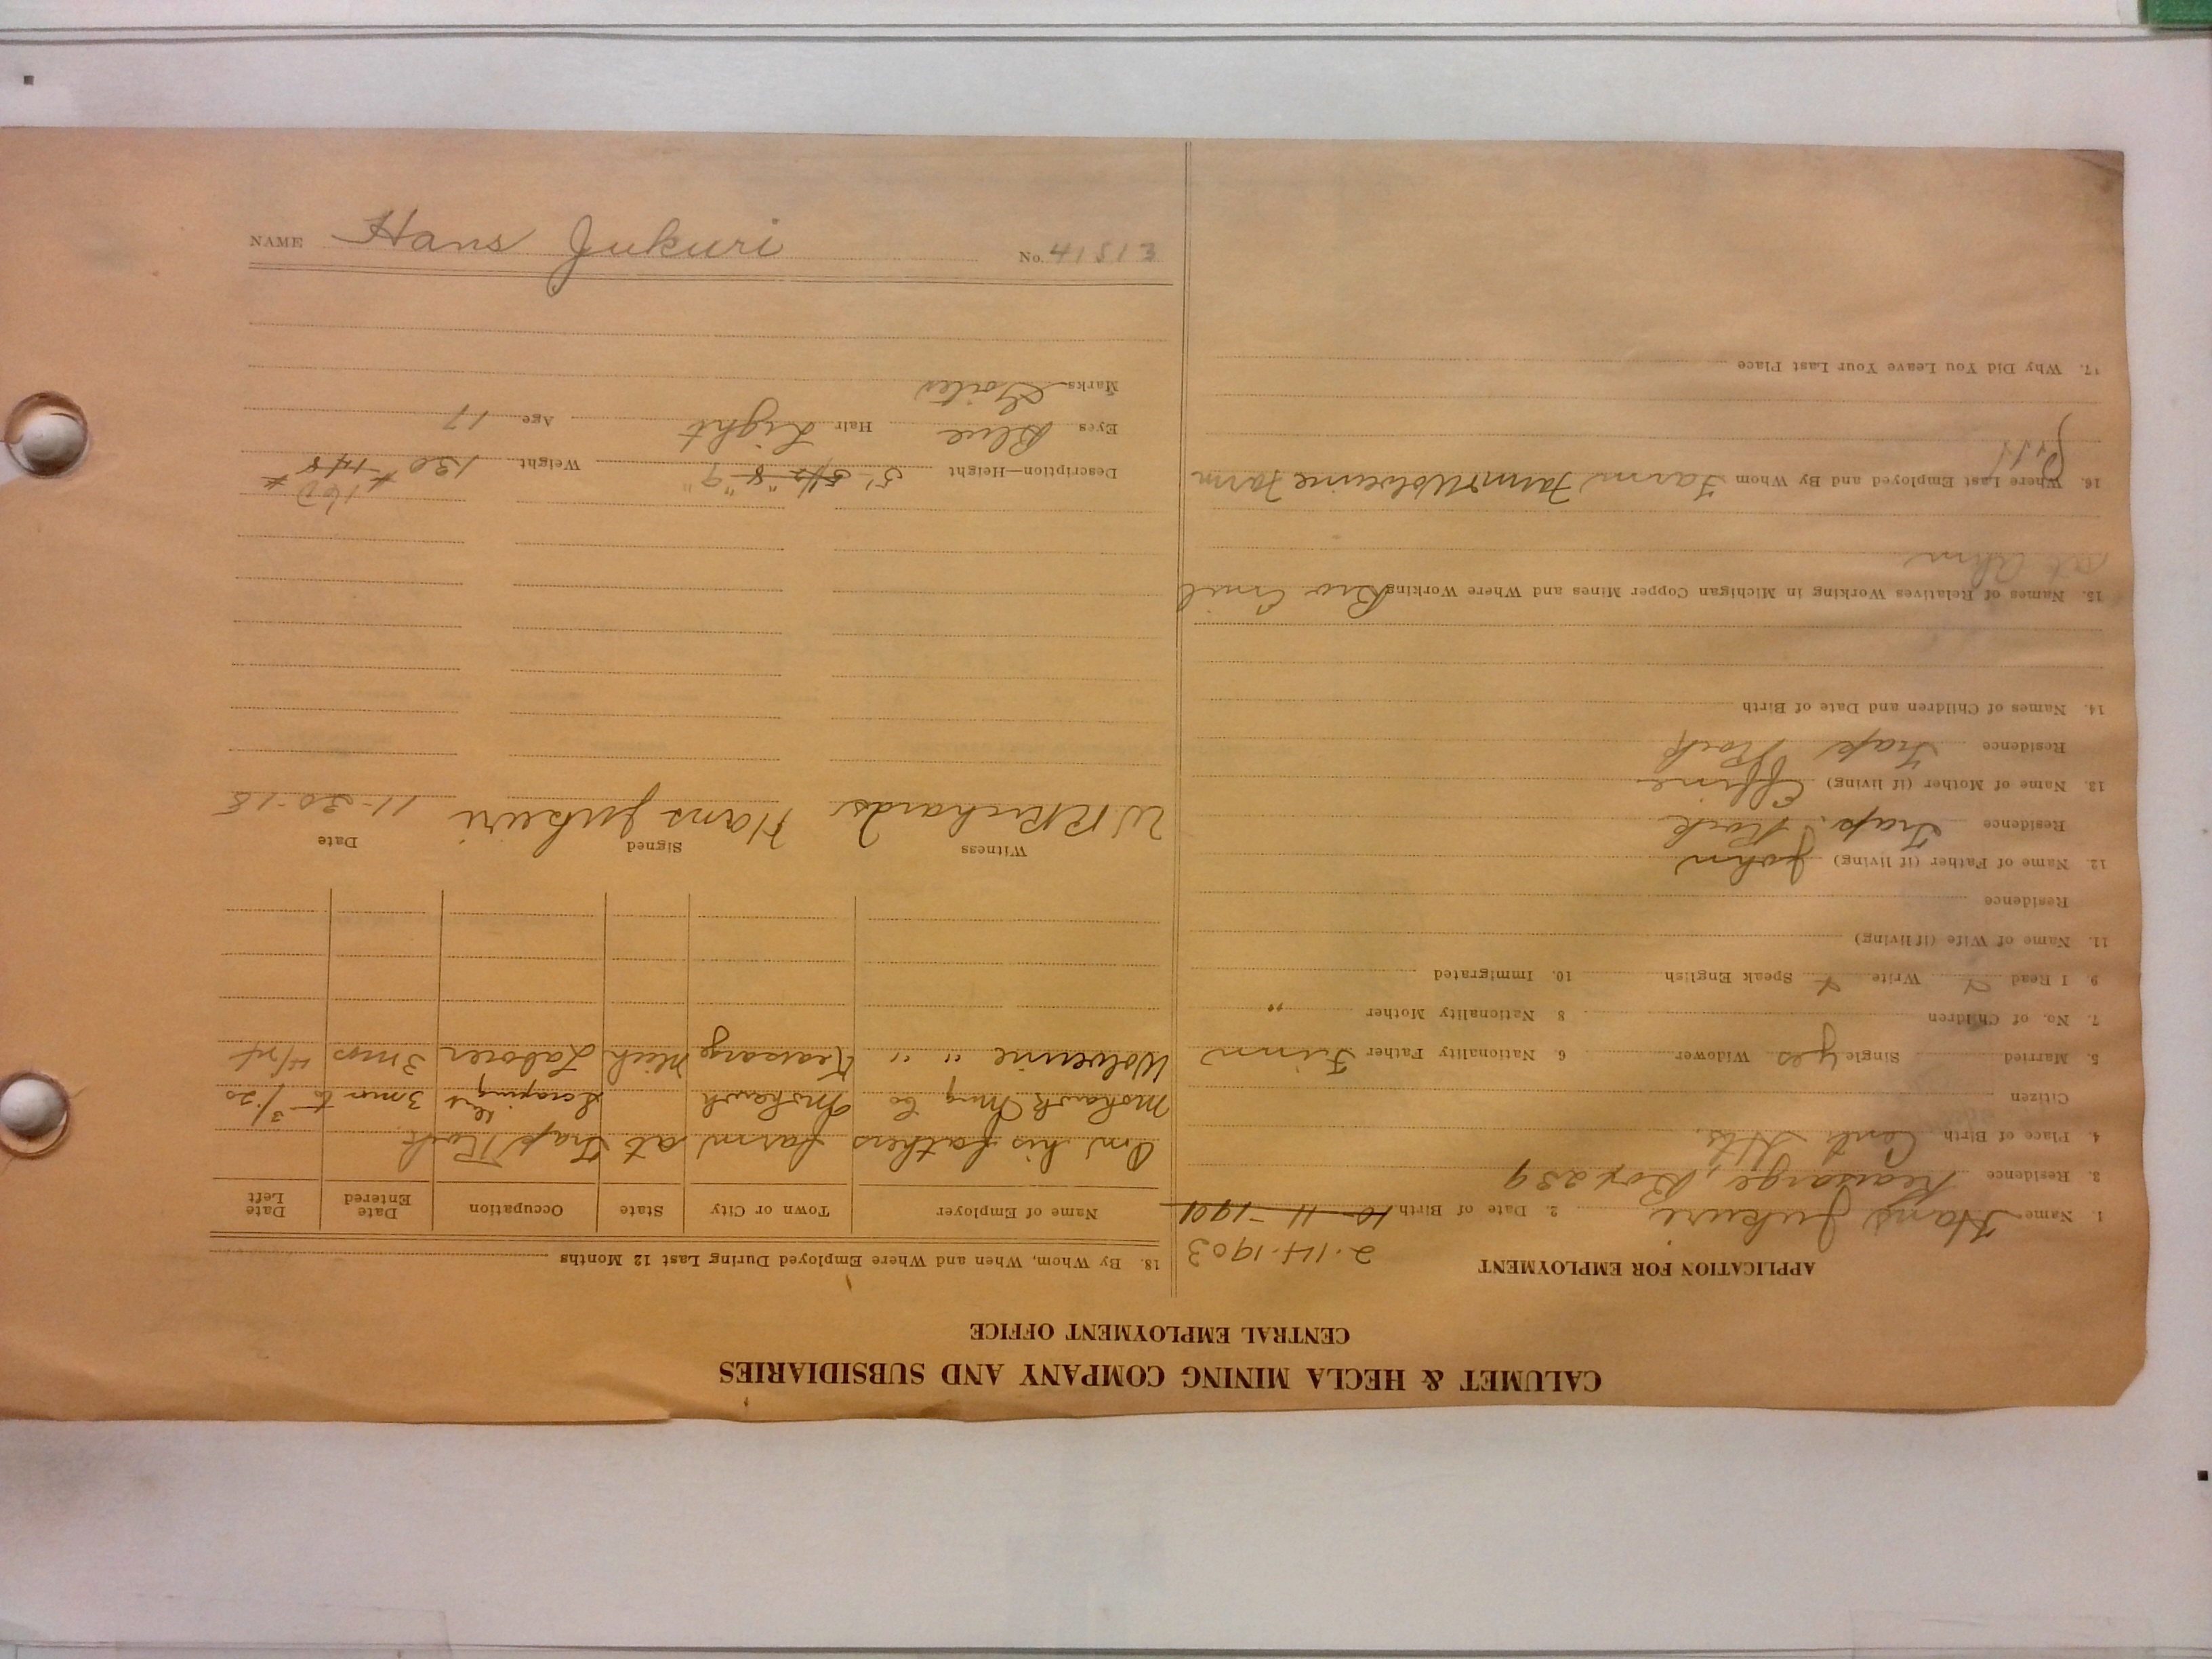 NAME Hans Jukuri No. 41513
CALUMET & HECLA MINING COMPANY AND SUBSIDIARIES
CENTRAL EMPLOYMENT OFFICE
APPLICATION FOR EMPLOYMENT
2-14-1903
1. Name Hans Jukuri 2. Date of Birth 10-11-1901
3. Residence Kearsarge, Box 239
4. Place of Birth Cent. Hts.
Citizen
5. Married Single yes Widower 6. Nationality Father Finn
7. No. of Children 8 Nationality Mother "
9 I Read Write Speak English 10. Immigrated
11. Name of Wife (if living)
Residence
12. Name of Father (if living) John
Residence Trap Rock
13. Name of Mother (if living)
Residence Trap Rock
14. Names of Children and Date of Birth
15. Names of Relatives Working in Michigan Copper Mines and Where Working Bro Emil
at Ahm
16. Where Last Employed and By Whom Farm Wolverine Farm
17. Why Did You Leave Your Last Place
18. By Whom, When and Where Employed During Last 12 Months
Name of Employer Town or City State Occupation Date Entered Date Left
On his fathers farm at Trap Rock
Mohawk Mng Co Mohawk Scraping 3 mos to 3/20
Wolverine " " Kearsarge Mich Laborer 3 mos
Witness Signed Date
W R Richards Hans Jukuri 11-30-18
160
Description—Height 5' 8" 9" Weight 130 # 148 #
Eyes Blue Hair Light Age 17
Marks Goiter